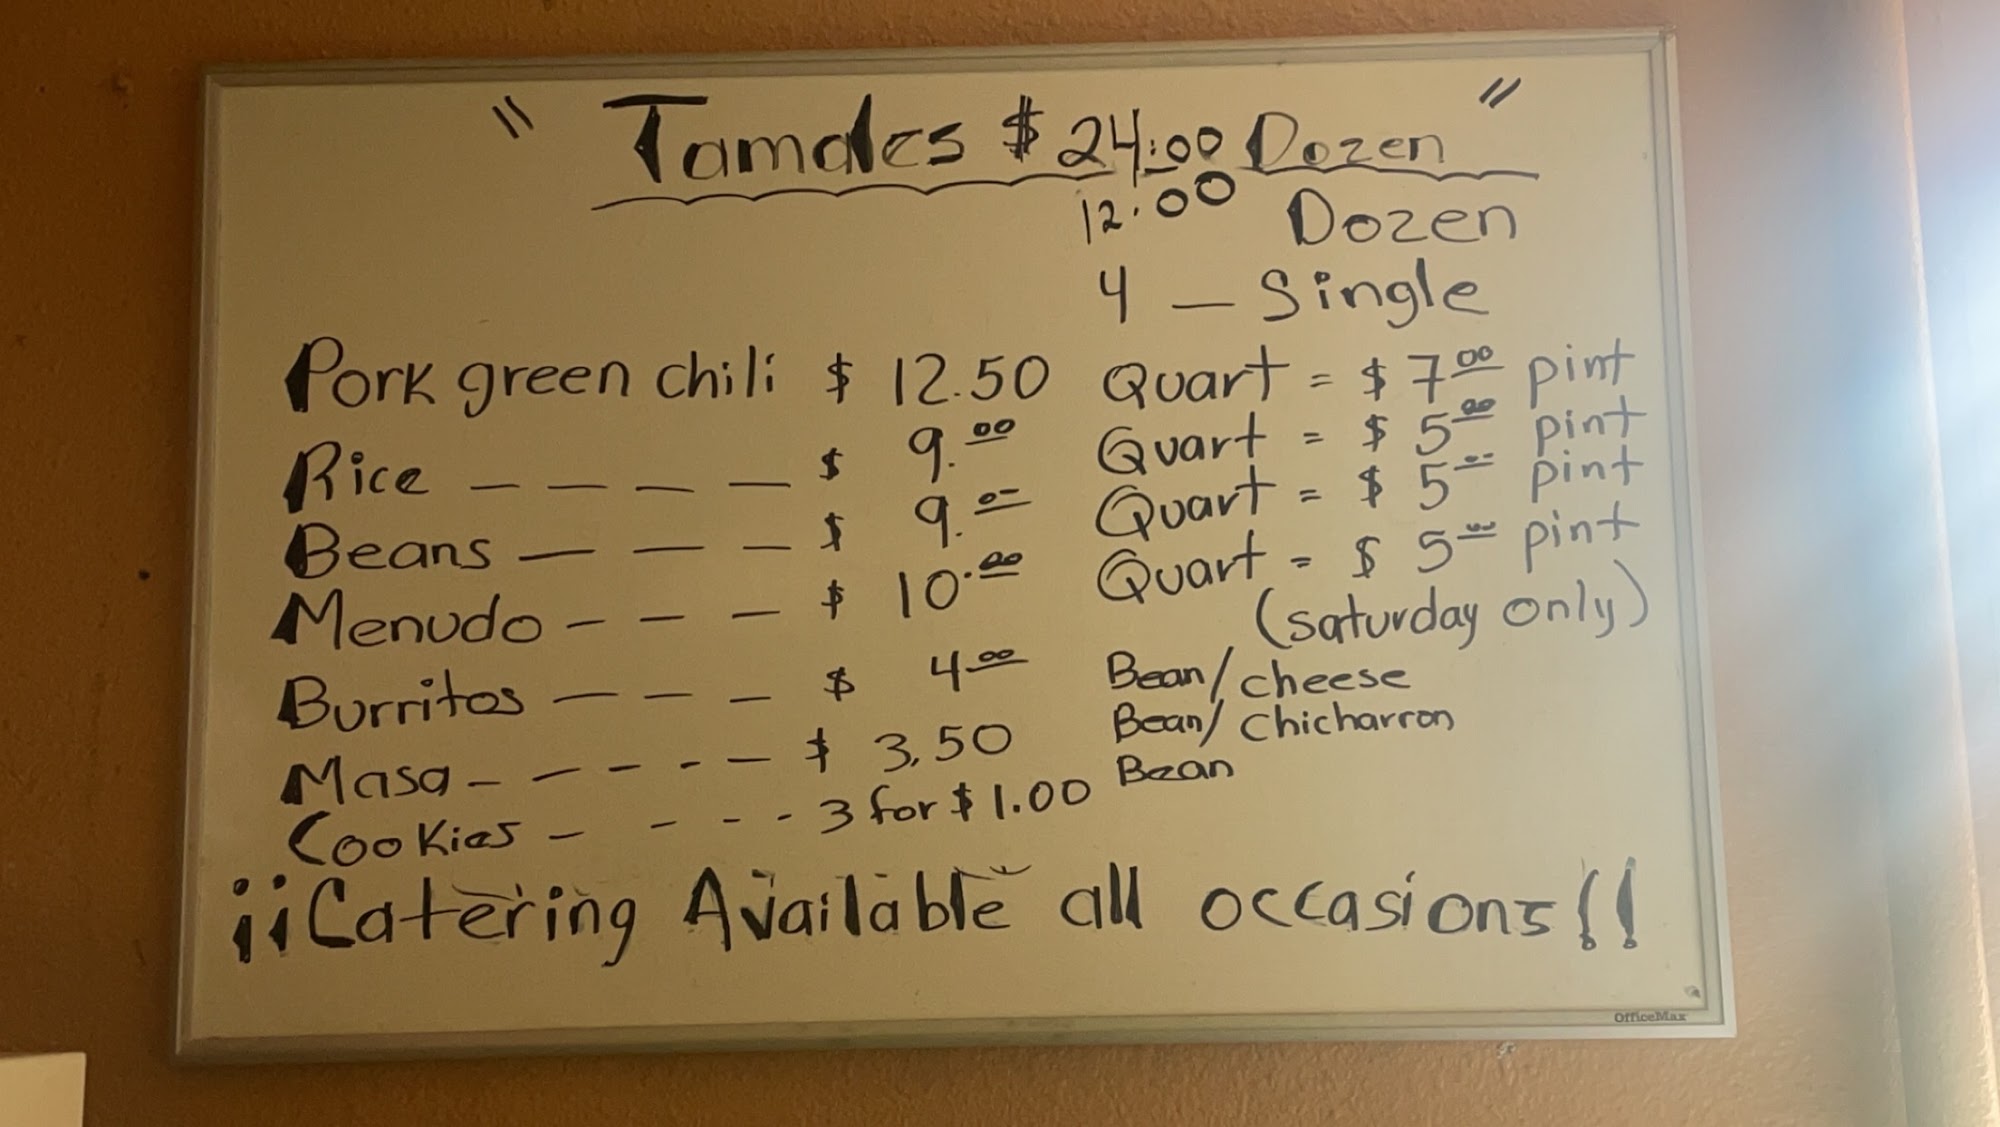 " Tamales $ 24.00 Dozen "
12.00 Dozen
4 — Single
Pork green chili $ 12.50 Quart = $ 7.00 pint
Rice — — — — $ 9.00 Quart = $ 5.00 pint
Beans — — — $ 9.00 Quart = $ 5.00 pint
Menudo — — — $ 10.00 Quart = $ 5.00 pint
(saturday only)
Burritos — — — $ 4.00 Bean/cheese
Bean/Chicharron
Bean
Masa - - - - - $ 3.50
Cookies - - - - 3 for $ 1.00
¡¡Catering Available all occasions!!
OfficeMax